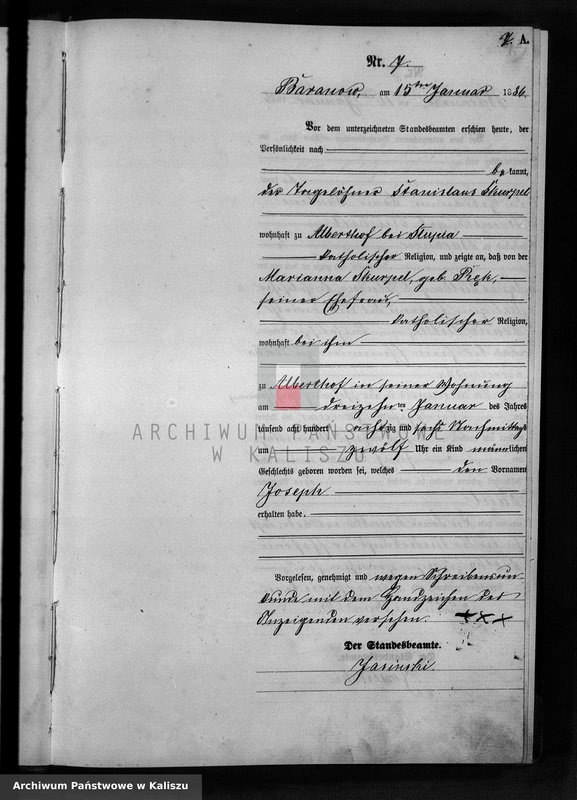 7. A.
Nr. 7.
Baranow, am 15ten Januar 1886.
Vor dem unterzeichneten Standesbeamten erschien heute, der
Persönlichkeit nach
be kannt,
der Tagelöhner Stanislaus Skurpel
wohnhaft zu Alberthof bei Slupia
katholischer Religion, und zeigte an, daß von der
Marianna Skurpel, geb. Pręk,
seiner Ehefrau,
katholischer Religion,
wohnhaft bei ihm
zu Alberthof in seiner Wohnung
am dreizehn ten Januar des Jahres
tausend acht hundert achtzig und sechs Nachmittags
um zwölf Uhr ein Kind männlichen
Geschlechts geboren worden sei, welches den Vornamen
Joseph
erhalten habe.
Vorgelesen, genehmigt und wegen Schreibensun
kunde mit dem Handzeichen des
Anzeigenden versehen. +++
Der Standesbeamte.
Jasinski
ARCHIWUM PAŃSTWOWE
W KALISZU
Archiwum Państwowe w Kaliszu